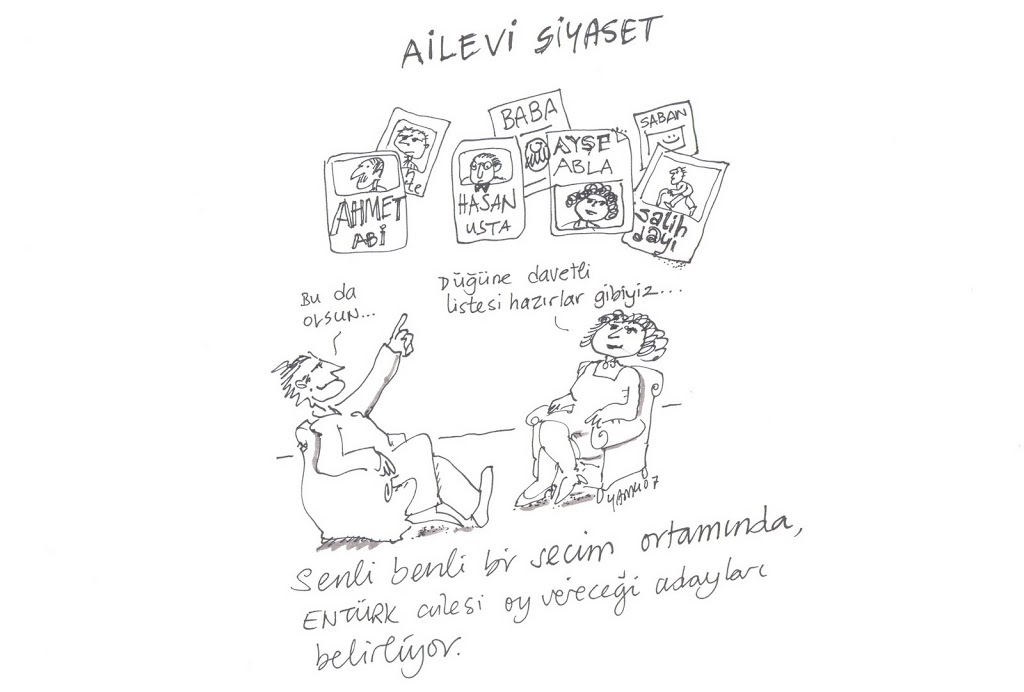 AİLEVİ SİYASET
BABA
SABAN
AYŞE
ABLA
HASAN
USTA
AHMET
ABİ
Salih
dayı
Bu da
olsun...
Düğüne davetli
listesi hazırlar gibiyiz...
Senli benli bir secim ortamında,
ENTÜRK ailesi oy vereceği adayları
belirliyor.